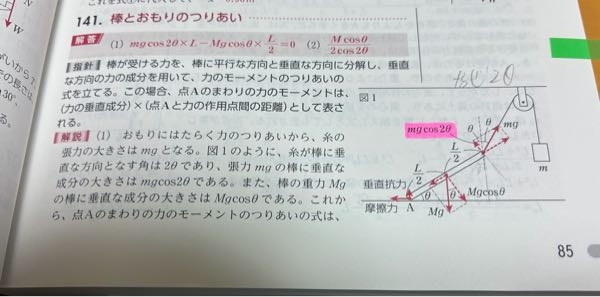 141. 棒とおもりのつりあい
解答 (1) mgcos2θ×L−Mgcosθ×L/2=0 (2) Mcosθ/2cos2θ
指針 棒が受ける力を、棒に平行な方向と垂直な方向に分解し、垂直
な方向の力の成分を用いて、力のモーメントのつりあいの
式を立てる。この場合、点Aのまわりの力のモーメントは、
(力の垂直成分)×(点Aと力の作用点間の距離)として表さ
れる。
解説 (1) おもりにはたらく力のつりあいから、糸の
張力の大きさはmgとなる。図1のように、糸が棒に垂
直な方向となす角は2θであり、張力mgの棒に垂直な
成分の大きさはmgcos2θである。また、棒の重力Mg
の棒に垂直な成分の大きさはMgcosθである。これか
ら、点Aのまわりの力のモーメントのつりあいの式は、
図1
mgcos2θ
θ
θ
mg
L/2
L/2
m
垂直抗力
θ
θ
Mgcosθ
摩擦力 A
Mg
85
W
130°